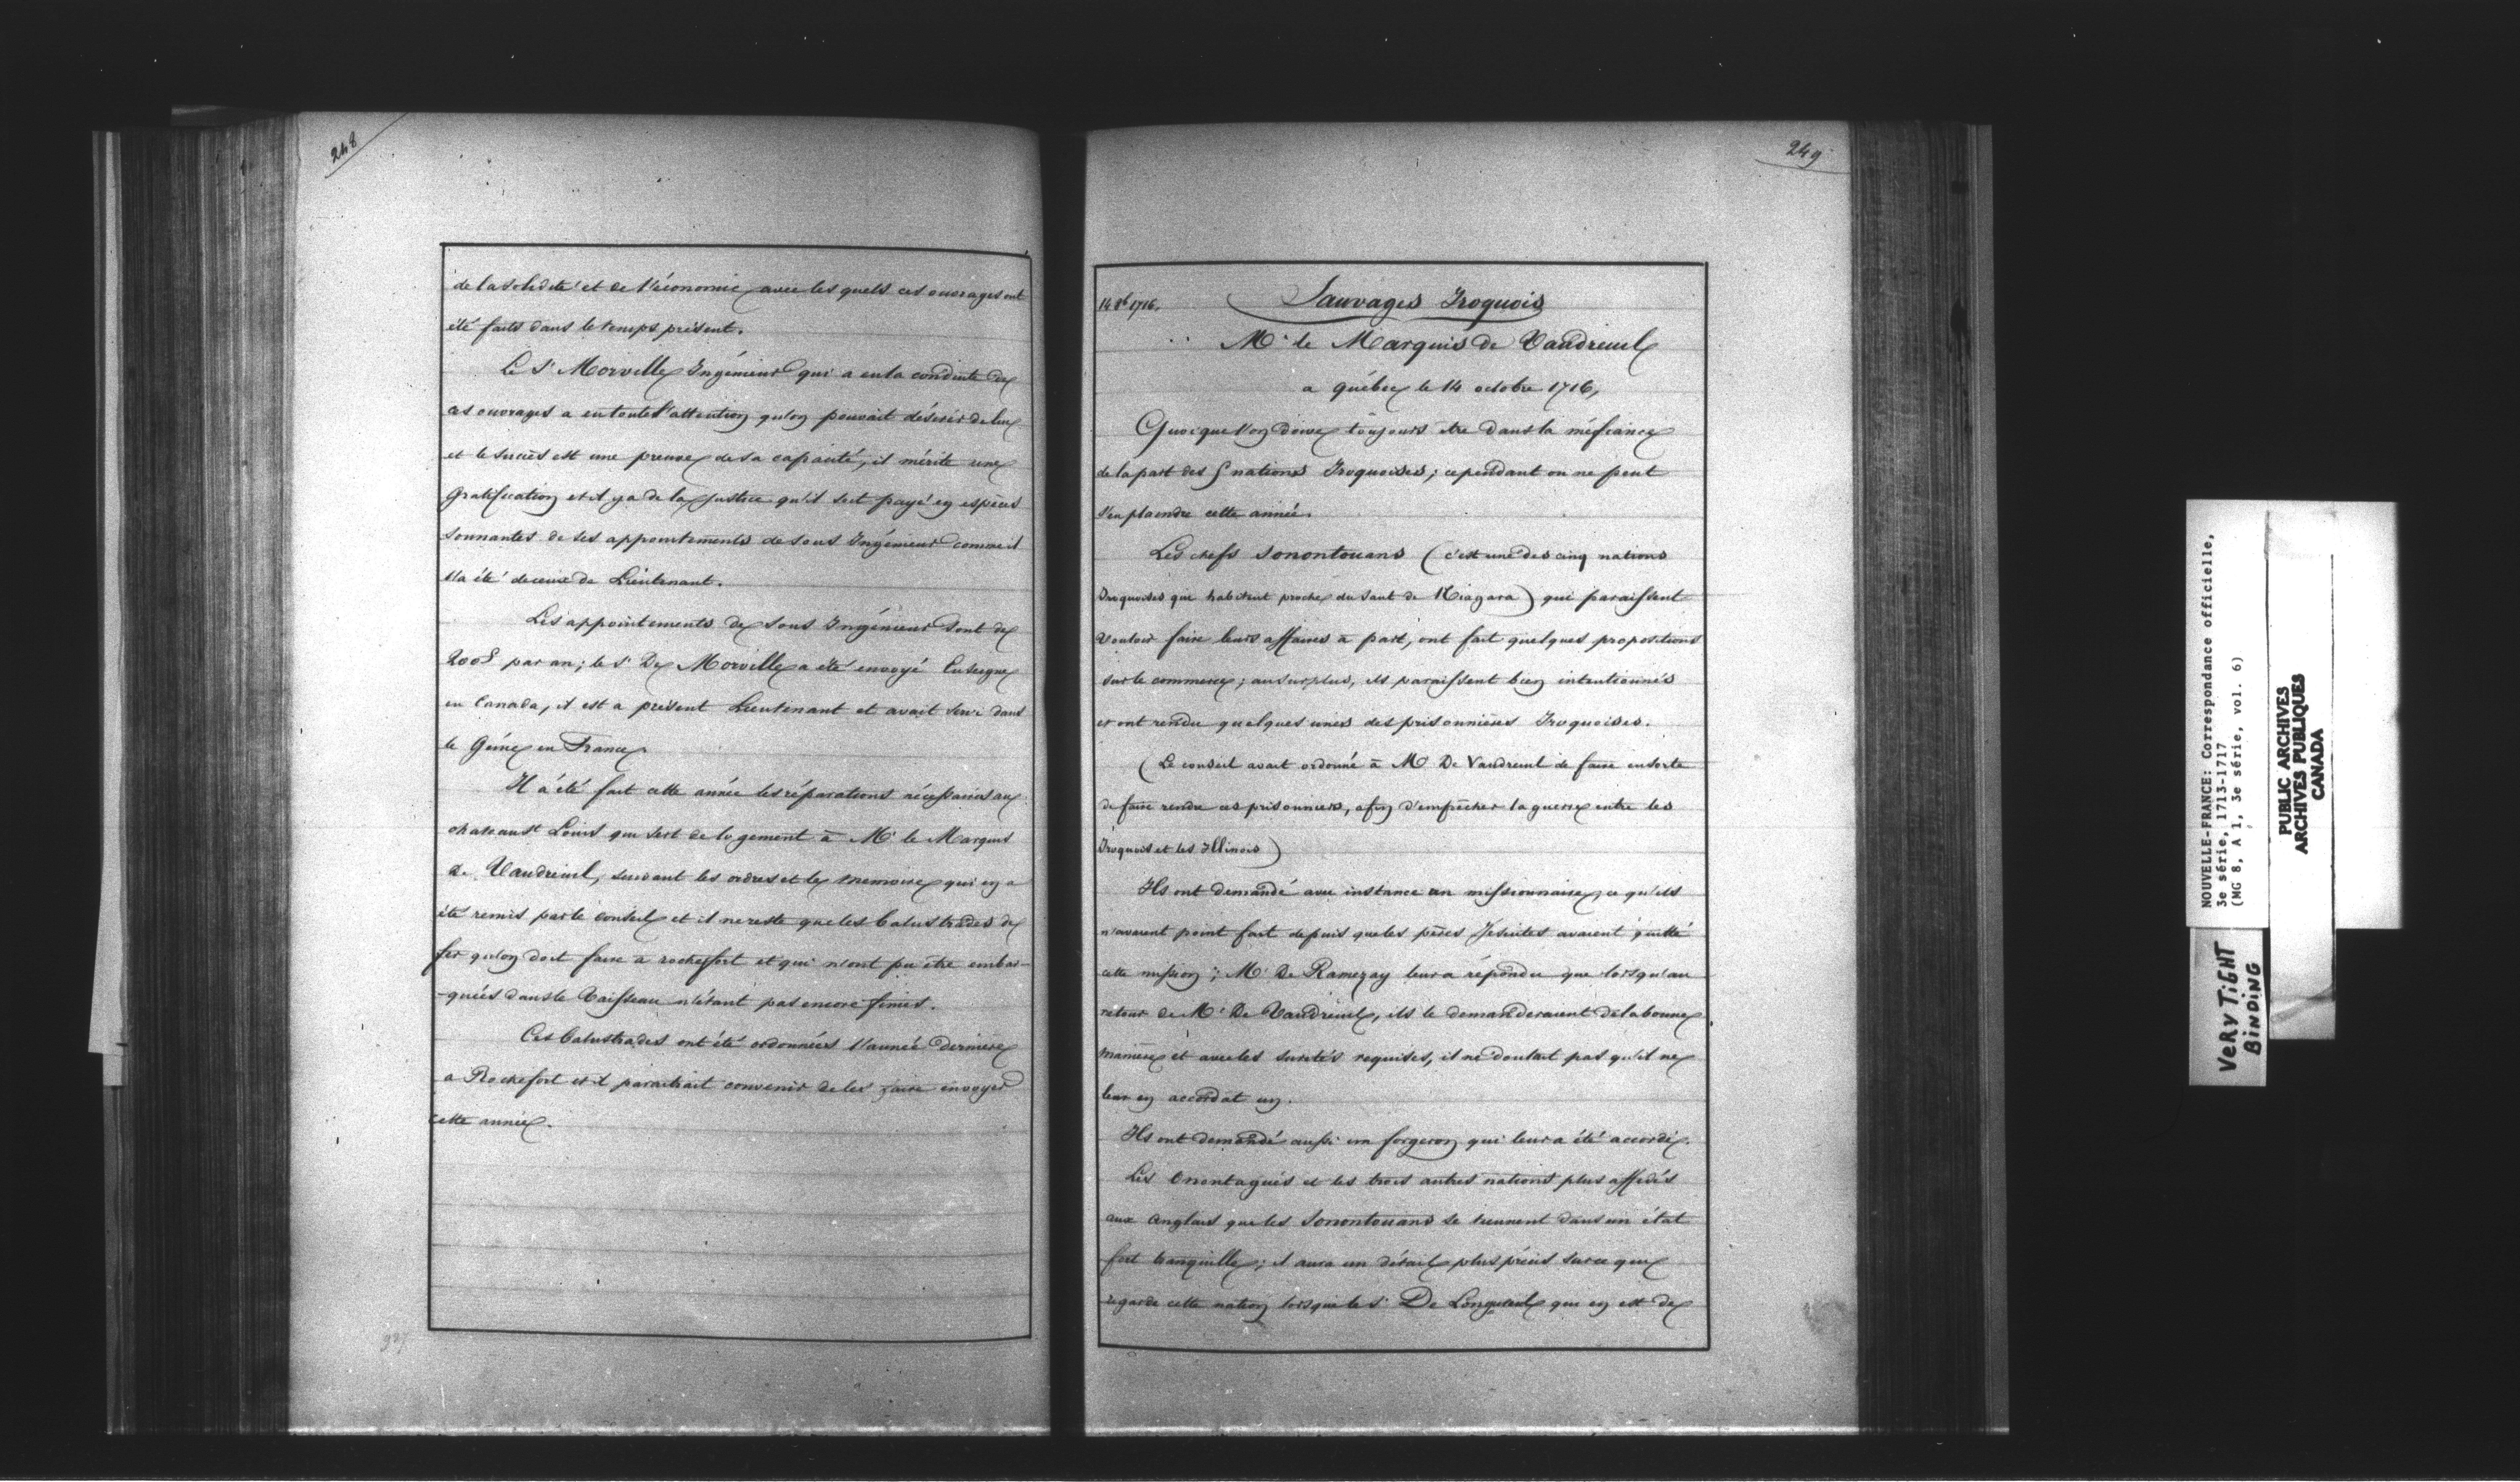 248
de la solidité et de l'économie avec les quels ces ouvrages ont
été faits dans le temps présent.
Le Sr Morville Ingénieur qui a eu la conduite de
ces ouvrages a eu toute l'attention qu'on pouvait désirer de lui
et le succès est une preuve de sa capacité, il mérite une
Gratification et il y a de la justice qu'il soit payé en espèces
sonnantes de ses appointements de sous Ingénieur comme il
l'a été de ceux de Lieutenant.
Les appointements de sous Ingénieur sont de
par an; le Sr De Morville a été envoyé Enseigne
en Canada, il est a présent Lieutenant et avait servi dans
le Génie en France.
Il a été fait cette année les réparations nécessaires au
chateau St Louis qui sert de logement à Mr le Marquis
de Vaudreuil, suivant les ordres et le memoire qui en a
été remis par le conseil et il ne reste que les balustrades de
fer qu'on doit faire a rochefort et qui n'ont pu être embar-
-quées dans le Vaisseau n'étant pas encore finies.
Ces balustrades ont été ordonnées l'année dernière
a Rochefort et il paraitrait convenir de les faire envoyer
cette année.
249
14 8b 1716.
Sauvages Iroquois
Mr le Marquis de Vaudreuil
a québec le 14 octobre 1716,
Quoique l'on doive toujours être dans la méfiance
de la part des 5 nations Iroquoises; cependant on ne peut
s'en plaindre cette année.
Les chefs Sonontouans (c'est une des cinq nations
Iroquoises qui habitent proche du Saut de Niagara) qui paraissent
vouloir faire leurs affaires à part, ont fait quelques propositions
sur le commerce; au surplus, ils paraissent bien intentionnés
et ont rendu quelques unes des prisonnières Iroquoises.
(Le conseil avait ordonné à Mr De Vaudreuil de faire ensorte
de faire rendre ces prisonniers, afin d'empêcher la guerre entre les
Iroquois et les Illinois)
Ils ont demandé avec instance un missionnaire, ce qu'ils
n'avaient point fait depuis que les pères Jesuites avaient quitté
cette mission; Mr De Ramezay leur a répondu que lorsqu'au
retour de Mr De Vaudreuil, ils le demanderaient de la bonne
manière et avec les suretés requises, il ne doutait pas qu'il ne
leur en accordat un.
Ils ont demandé aussi un forgeron qui leur a été accordé.
Les Onontagués et les trois autres nations plus affidés
aux Anglais que les Sonontouans se tiennent dans un état
fort tranquille; il aura un détail plus précis sur ce qui
regarde cette nation lorsque le Sr De Longueuil qui en est de
327
NOUVELLE-FRANCE: Correspondance officielle,
3e série, 1713-1717
(MG 8, A 1, 3e série, vol. 6)
PUBLIC ARCHIVES
ARCHIVES PUBLIQUES
CANADA
VERY TiGHT
BiNDiNG